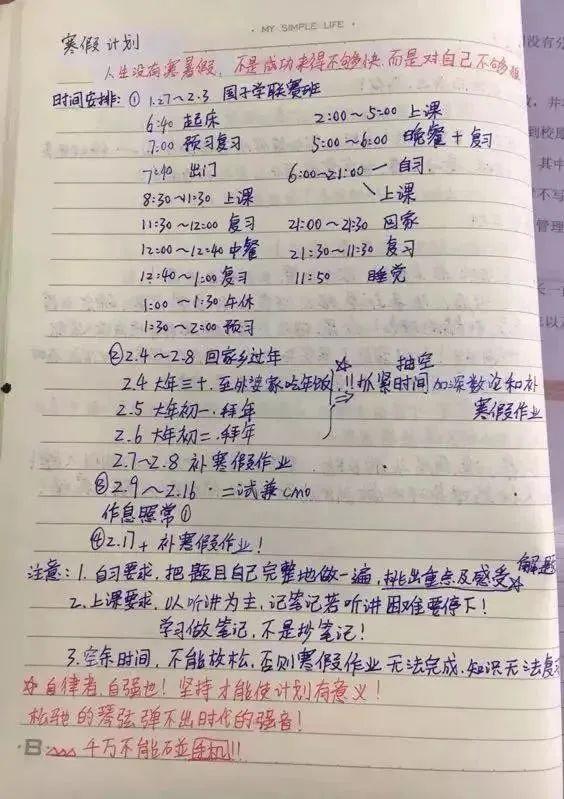 · MY SIMPLE LIFE ·
寒假计划
人生没有寒暑假，不是成功来得不够快，而是对自己不够狠
时间安排：① 1.27～2.3 国子学联赛班
6:40 起床 2:00～5:00 上课
7:00 预习复习 5:00～6:00 晚餐 + 复习
7:40 出门 6:00～21:00 — 自习
8:30～11:30 上课 上课
11:30～12:00 复习 21:00～21:30 回家
12:00～12:40 中餐 21:30～11:30 复习
12:40～1:00 复习 11:50 睡觉
1:00～1:30 午休
1:30～2:00 预习
② 2.4～2.8 回家乡过年 ☆ 抽空
2.4 大年三十、至外婆家吃年饭 !! 抓紧时间 加深数论和补
2.5 大年初一、拜年 ⇒ 寒假作业
2.6 大年初二、拜年
2.7～2.8 补寒假作业
③ 2.9～2.16 · 二试兼cmo
作息照常①
④ 2.17+ 补寒假作业！
注意：1. 自习要求，把题目自己完整地做一遍，挑出重点及感受☆ 解题
2. 上课要求，以听讲为主，记笔记若听讲困难要停下！
学习做笔记，不是抄笔记！
3. 空余时间，不能放松，否则寒假作业无法完成，知识无法复
☆ 自律者，自强也！坚持才能使计划有意义！
松弛的琴弦弹不出时代的强音！
B 千万不能碰手机!!
没有分
校
其中
不写
管理